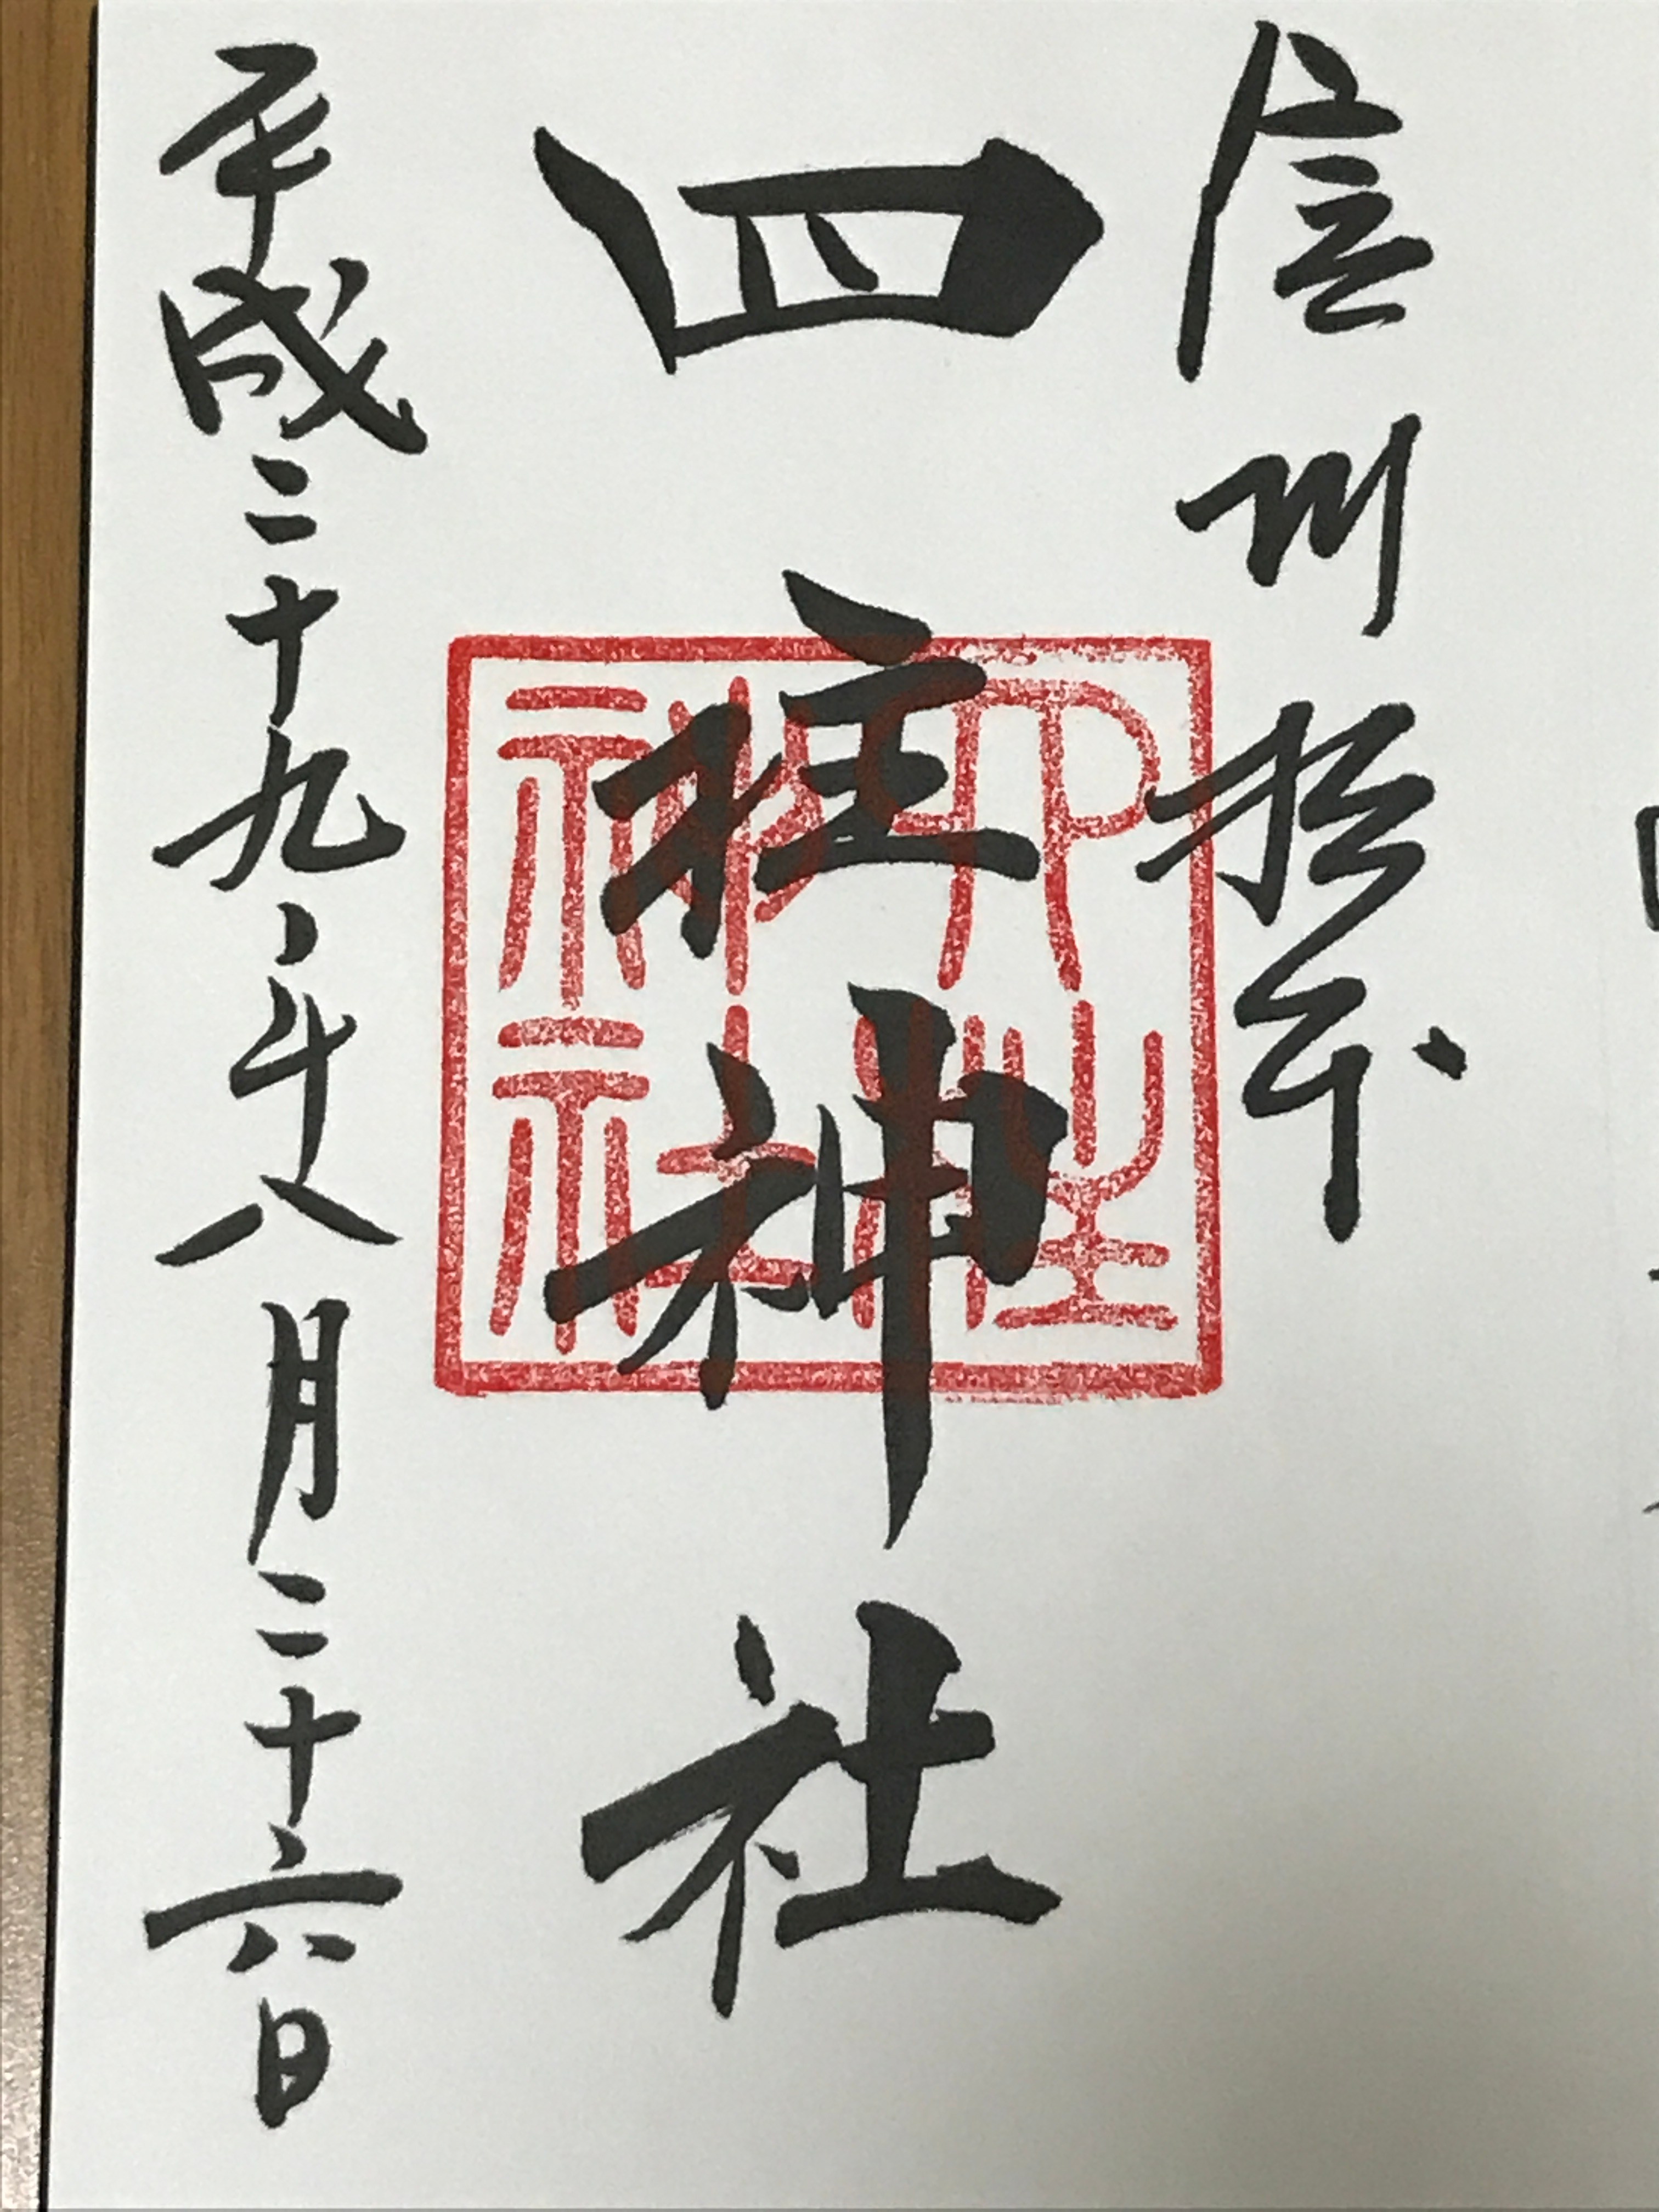 信州松本
四柱神社
四柱神社
平成二十九年八月二十六日